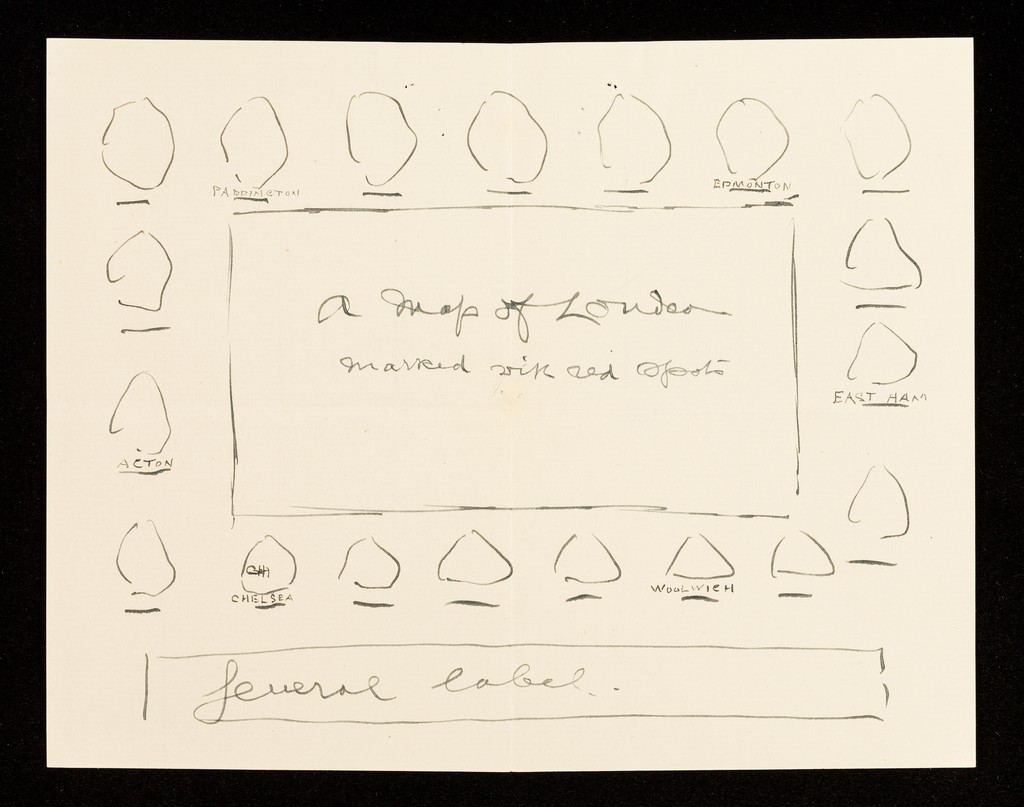 PADDINGTON
EDMONTON
A Map of London
marked with red spots
EAST HAM
ACTON
CH
CHELSEA
WOOLWICH
General label..